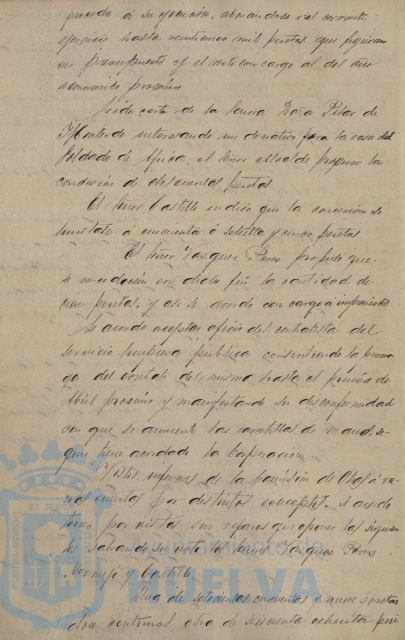 proceda á su ejecución, abonandose del corriente
ejercicio hasta veintiuna mil pesetas que figuran
en presupuesto y el resto con cargo al del año
economico proximo
Leida carta de la Señora Doña Pilar de
interesando un donativo para la casa del
Soldado de Africa, el Señor Alcalde propuso la
concesión de doscientas pesetas
El Señor Castilla indicó que la concesión se
limitase á cincuenta ó setenta y cinco pesetas
El Señor Vazquez Perez propuso que
se concediesen con dicho fin la cantidad de
cien pesetas, y asi se acordó con cargo a imprevistos
Se acordó aceptar oficio del contratista del
servicio limpieza publica consintiendo la prorro
ga del contrato del mismo hasta el primero de
Abril proximo y manifestando su disconformidad
con que se aumente las carretillas de mano se
gún tiene acordado la Corporación
Vistos informes de la Comisión de Obras á va
rias cuentas por distintos conceptos, se acordó
que las siguien
tes salvando su voto el Señor Vazquez Perez
Bermejo y Castilla
Una de setecientas cincuenta y nueve pesetas
doce centimos, otra de sesenta ochenta
Ayuntamiento de
HUELVA